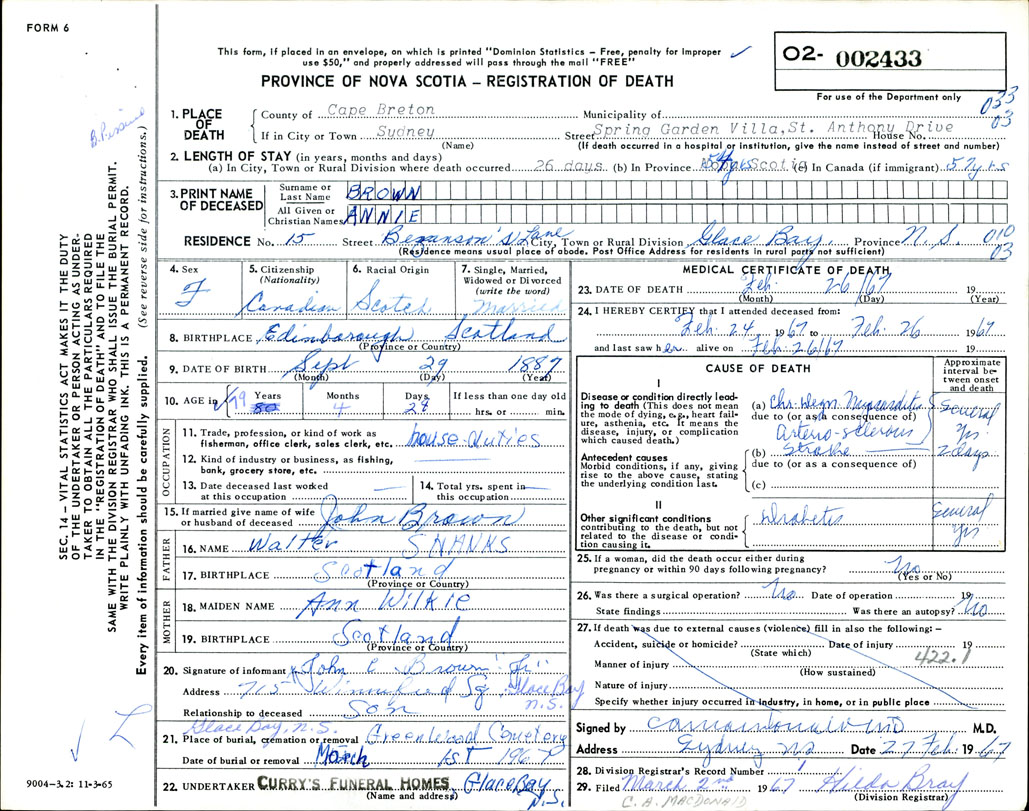 FORM 6
This form, if placed in an envelope, on which is printed "Dominion Statistics – Free, penalty for improper
use $50," and properly addressed will pass through the mail "FREE"
PROVINCE OF NOVA SCOTIA – REGISTRATION OF DEATH
O2- 002433
For use of the Department only
033
03
1. PLACE OF DEATH
County of Cape Breton Municipality of
If in City or Town Sydney Street Spring Garden Villa, St. Anthony Drive House No.
(Name) (If death occurred in a hospital or institution, give the name instead of street and number)
2. LENGTH OF STAY (in years, months and days)
(a) In City, Town or Rural Division where death occurred 26 days (b) In Province Scotia (c) In Canada (if immigrant) 57 yrs
3. PRINT NAME OF DECEASED
Surname or Last Name BROWN
All Given or Christian Names ANNIE
RESIDENCE No. 15 Street Bezanson's Lane City, Town or Rural Division Glace Bay Province N.S. 010
03
(Residence means usual place of abode. Post Office Address for residents in rural parts not sufficient)
4. Sex F
5. Citizenship (Nationality) Canadian
6. Racial Origin Scotch
7. Single, Married, Widowed or Divorced (write the word) Married
8. BIRTHPLACE Edinborough Scotland
(Province or Country)
9. DATE OF BIRTH Sept 29 1887
(Month) (Day) (Year)
10. AGE in Years 79 80 Months 4 Days 28 If less than one day old hrs. or min.
OCCUPATION
11. Trade, profession, or kind of work as fisherman, office clerk, sales clerk, etc. house duties
12. Kind of industry or business, as fishing, bank, grocery store, etc.
13. Date deceased last worked at this occupation
14. Total yrs. spent in this occupation
15. If married give name of wife or husband of deceased John Brown
FATHER
16. NAME Walter SHANKS
17. BIRTHPLACE Scotland
(Province or Country)
MOTHER
18. MAIDEN NAME Ann Wilkie
19. BIRTHPLACE Scotland
(Province or Country)
20. Signature of informant John C Brown Jr
Address 715 Sq. Glace Bay N.S.
Relationship to deceased Son
Glace Bay, N.S.
21. Place of burial, cremation or removal Greenwood Cemetery
Date of burial or removal March 1st 1967
22. UNDERTAKER CURRY'S FUNERAL HOMES Glace Bay N.S.
(Name and address)
MEDICAL CERTIFICATE OF DEATH
23. DATE OF DEATH Feb. 26/67 19
(Month) (Day) (Year)
24. I HEREBY CERTIFY that I attended deceased from:
Feb. 24 1967 to Feb. 26 1967
and last saw her alive on Feb 26/67 19
CAUSE OF DEATH
Approximate interval between onset and death
I
Disease or condition directly leading to death (This does not mean the mode of dying, e.g., heart failure, asthenia, etc. It means the disease, injury, or complication which caused death.)
(a) Chr. Degn Myocarditis Several
due to (or as a consequence of)
Arterio-sclerosis yrs.
Antecedent causes
Morbid conditions, if any, giving rise to the above cause, stating the underlying condition last.
(b) Stroke 2 days
due to (or as a consequence of)
(c)
II
Other significant conditions contributing to the death, but not related to the disease or condition causing it.
Diabetis Several yrs
25. If a woman, did the death occur either during pregnancy or within 90 days following pregnancy? No
(Yes or No)
26. Was there a surgical operation? No Date of operation 19
State findings Was there an autopsy? No
27. If death was due to external causes (violence) fill in also the following: –
Accident, suicide or homicide? Date of injury 19
(State which) 422.1
Manner of injury
(How sustained)
Nature of injury
Specify whether injury occurred in industry, in home, or in public place
Signed by MD M.D.
Address Sydney NS Date 27 Feb. 1967
28. Division Registrar's Record Number
29. Filed March 2nd 1967 Hilda Bray
(Division Registrar)
C.A. MACDONALD
SEC. 14 – VITAL STATISTICS ACT MAKES IT THE DUTY
OF THE UNDERTAKER OR PERSON ACTING AS UNDER-
TAKER TO OBTAIN ALL THE PARTICULARS REQUIRED
IN THE "REGISTRATION OF DEATH" AND TO FILE THE
SAME WITH THE DIVISION REGISTRAR WHO SHALL ISSUE THE BURIAL PERMIT.
WRITE PLAINLY WITH UNFADING INK. THIS IS A PERMANENT RECORD.
Every item of information should be carefully supplied. (See reverse side for instructions.)
9004-3.2: 11-3-65